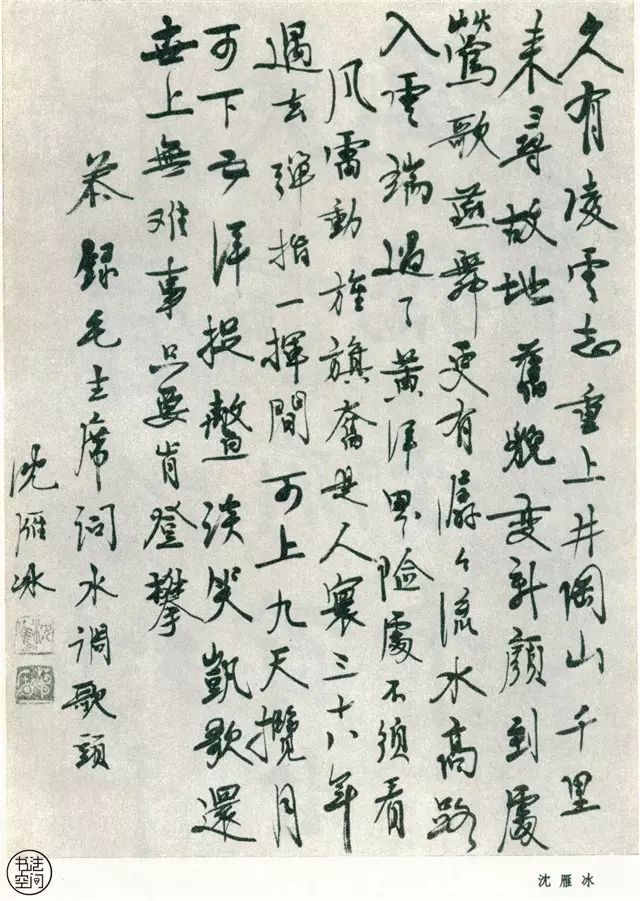 久有凌雲志重上井岡山千里
来尋故地舊貌变新顔到處
莺歌燕舞更有潺々流水高路
入雲端過了黄洋界險處不須看
風雷動旌旗奮是人寰三十八年
過去弹指一揮間可上九天攬月
可下五洋捉鳖谈笑凯歌還
世上無难事只要肯登攀
恭録毛主席词水调歌頭
沈雁冰
书法
空间
沈雁冰